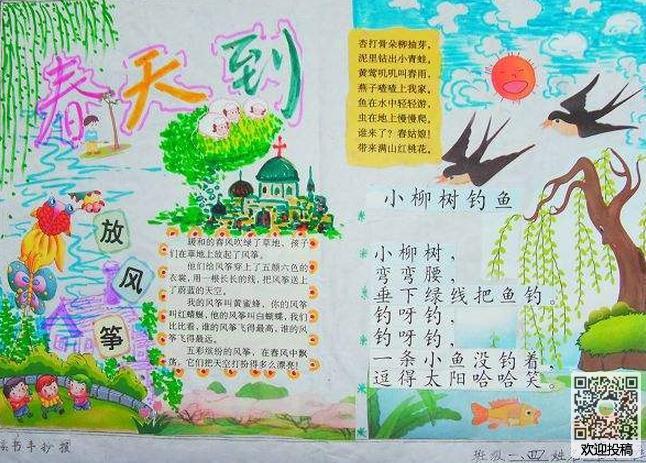 春天到
杏打骨朵柳抽芽，
泥里钻出小青蛙，
黄莺叽叽叫春雨，
燕子喳喳上我家，
鱼在水中轻轻游，
虫在地上慢慢爬，
谁来了？春姑娘！
带来满山红桃花。
放
风
筝
暖和的春风吹绿了草地、孩子
们在草地上放起了风筝。
他们给风筝穿上了五颜六色的
衣裳，用一根长长的线，把风筝送上
了蔚蓝的天空。
我的风筝叫黄蜜蜂，你的风筝
叫红蜻蜓，他的风筝叫白蝴蝶，我们
比比看，谁的风筝飞得最高，谁的风
筝飞得最远。
五彩缤纷的风筝，在春风中飘
荡，它们把天空打扮得多么漂亮！
小柳树钓鱼
小柳树，
弯弯腰，
垂下绿线把鱼钓。
钓呀钓，
钓呀钓，
一条小鱼没钓着，
逗得太阳哈哈笑。
读书手抄报
班级一、四 姓名
欢迎投稿